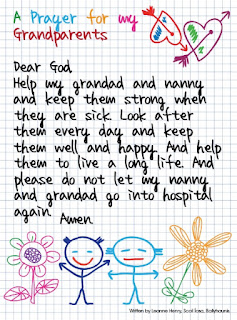 A Prayer for my
Grandparents
Dear God,
Help my grandad and nanny
and keep them strong when
they are sick. Look after
them every day and keep
them well and happy. And help
them to live a long life. And
please do not let my nanny
and grandad go into hospital
again
Amen
Written by Leanne Henry, Scoil Íosa, Ballyhaunis